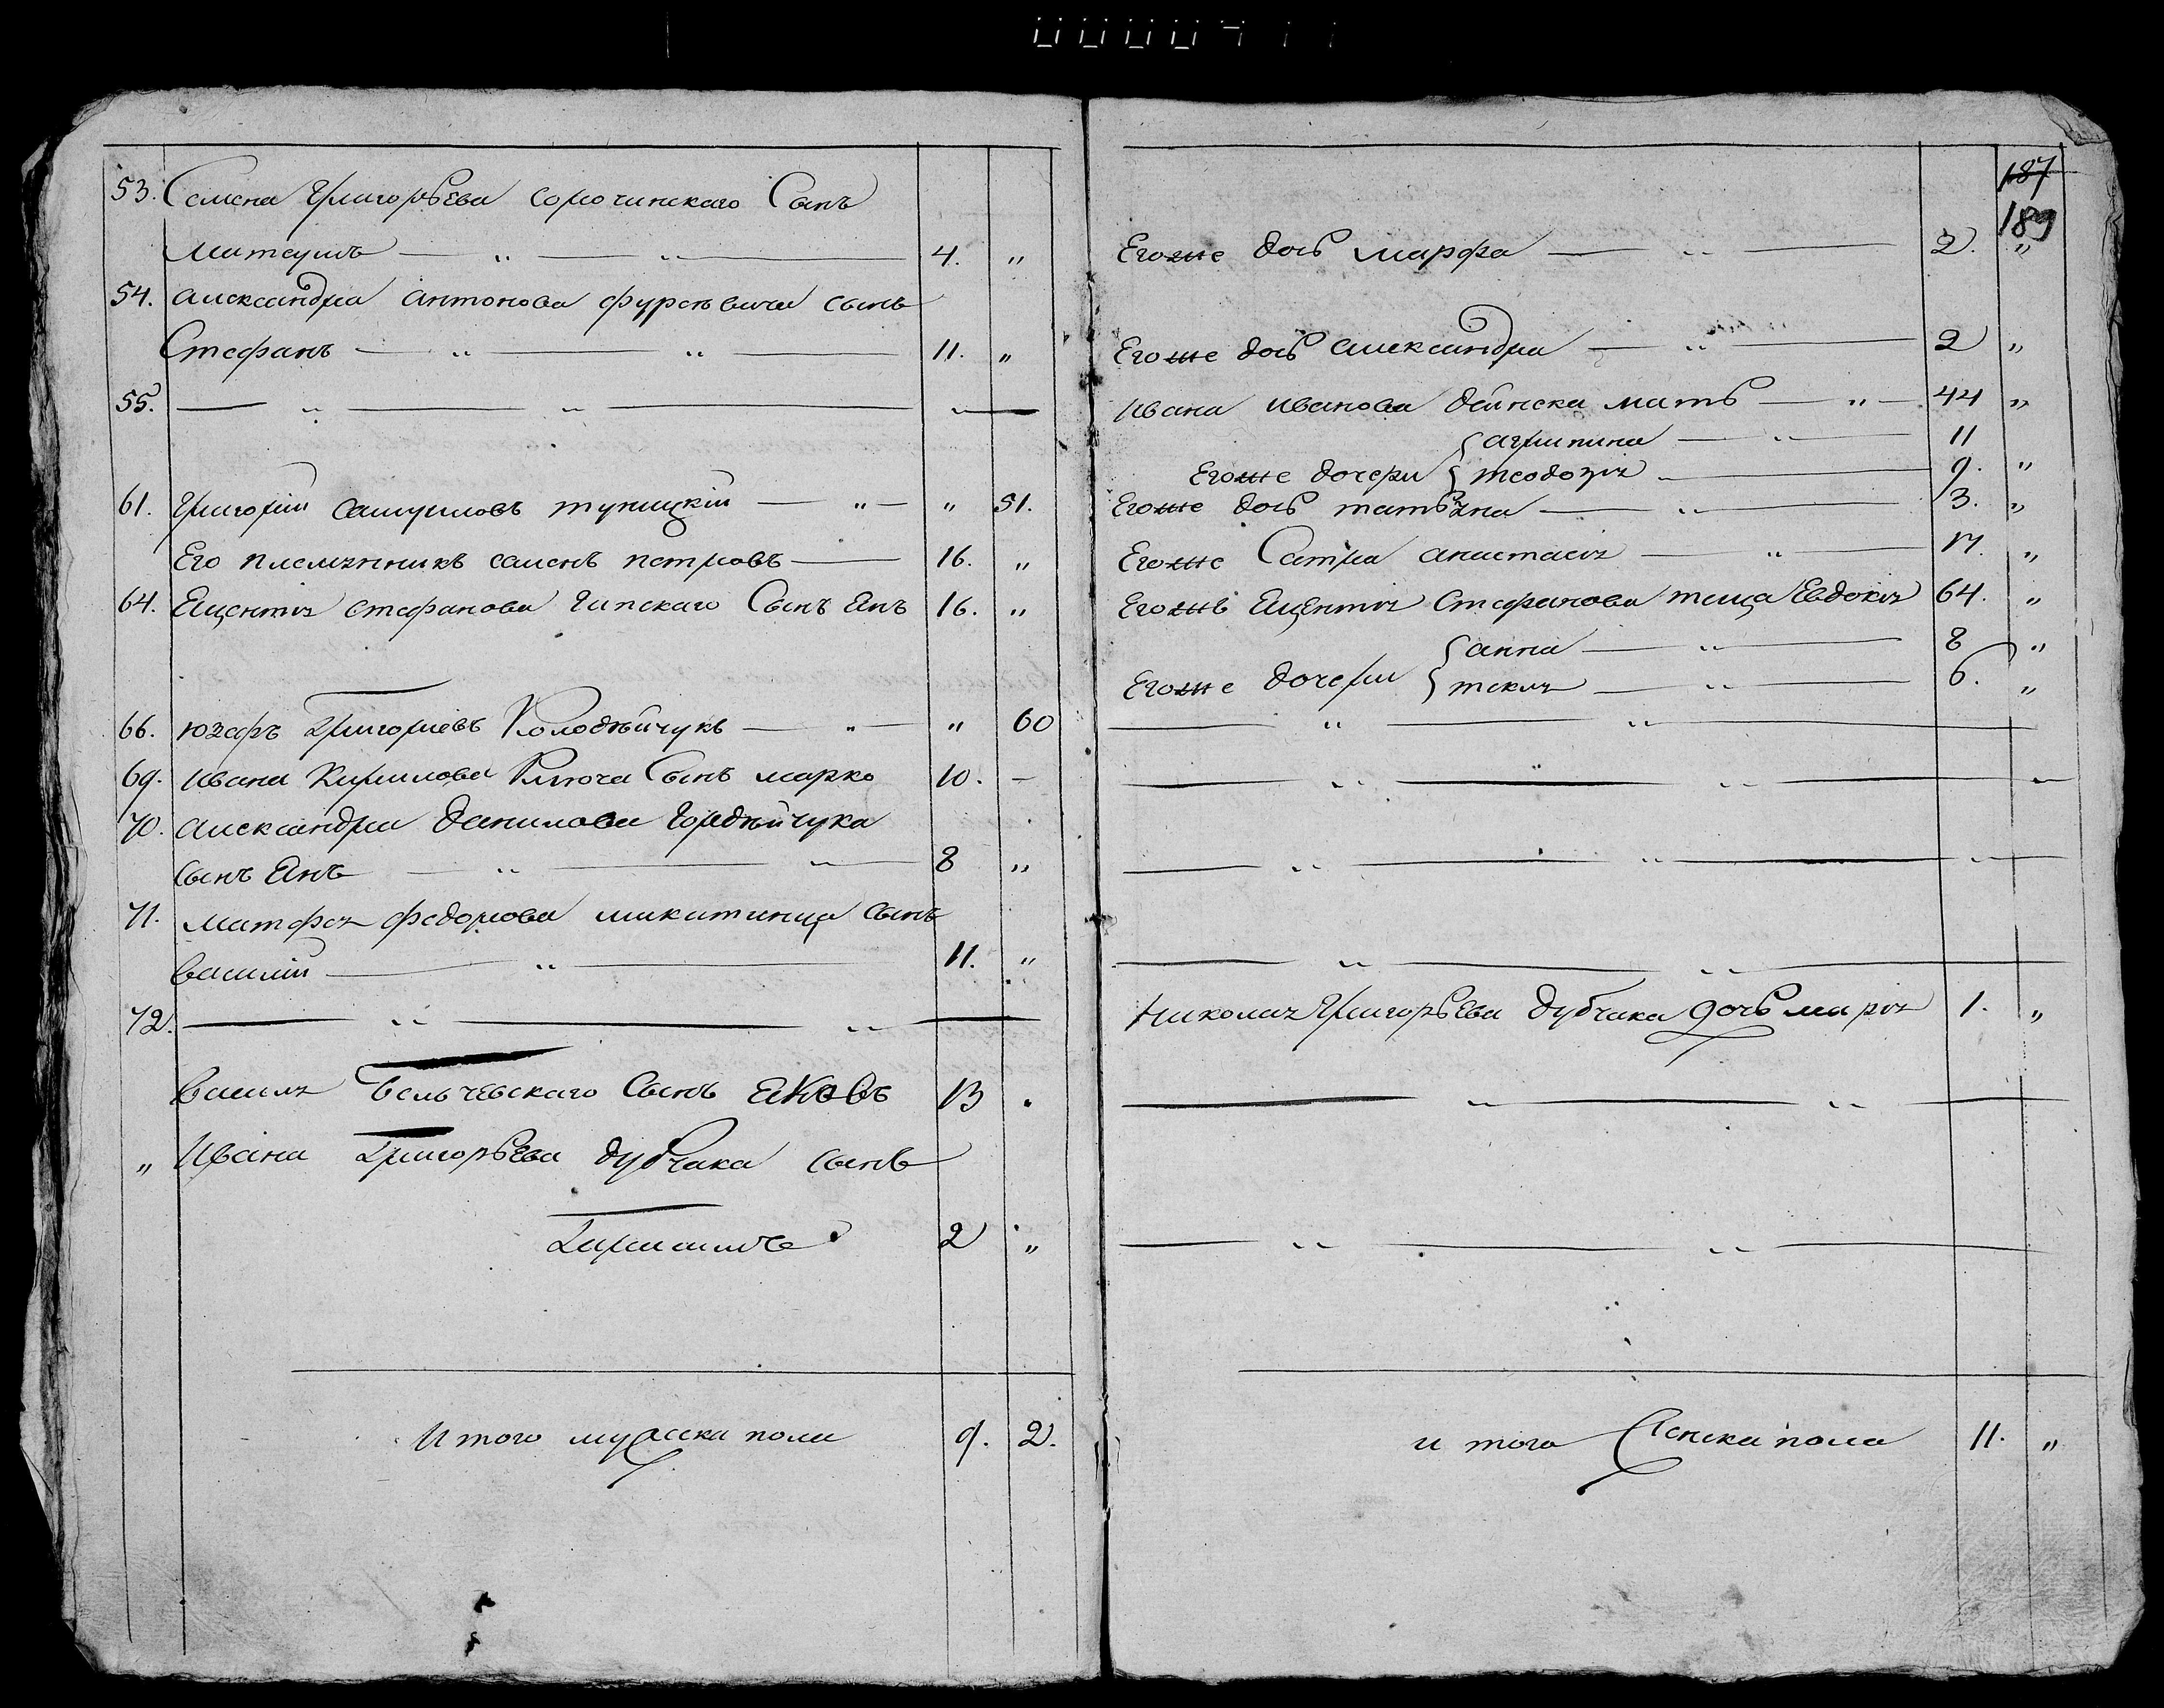 00004
187
189
53. Семена Григорьева Сорочинскаго Сынъ
Матеушъ — „ — „ — 4. „
54. Александра Антонова Фурсевича сынъ
Стефанъ — „ — „ — 11. „
55. — „ — „ —
61. Григорій Самуиловъ Тупицкій — „ — „ 51.
Его племянникъ Семенъ Петровъ — 16. „
64. Яцентія Стефанова Гипскаго Сынъ Янъ 16. „
66. Юзефъ Григоріевъ Колодѣйчукъ — „ — „ 60
69. Ивана Кирилова Ключа Сынъ Марко 10. —
70. Александра Данилова Гордѣйчука
Сынъ Янъ — „ — „ — 8 „
71. Матфея Федорова Микитинца Сынъ
Василій — „ — 11. „
72. — „ — „ —
Василя Бельчевскаго Сынъ Яковъ 13 .
„ Ивана Григорьева Дубчака сынъ
2 „
Итого мужеска пола 9. 2.
Егоже дочь Марфа — „ — 2. „
Егоже дочь Александра — „ — 2 „
Ивана Иванова Дейнека мать — „ — 44 „
Агрипина — „ — 11
Егоже дочери Теодозія — 9. „
Егоже дочь Татьяна — „ — 3. „
Егоже Сестра Анастасія — „ — 17. „
Егоже Яцентія Стефанова теща Евдокія 64. „
Анна — „ — 8 „
Егоже дочери Текля — „ — 6. „
— „ — „ —
— „ — „ —
— „ — „ —
— „ — „ —
Николая Григорьева Дубчака дочь Марія 1. „
— „ — „ —
— „ — „ —
и того Женска пола 11. „